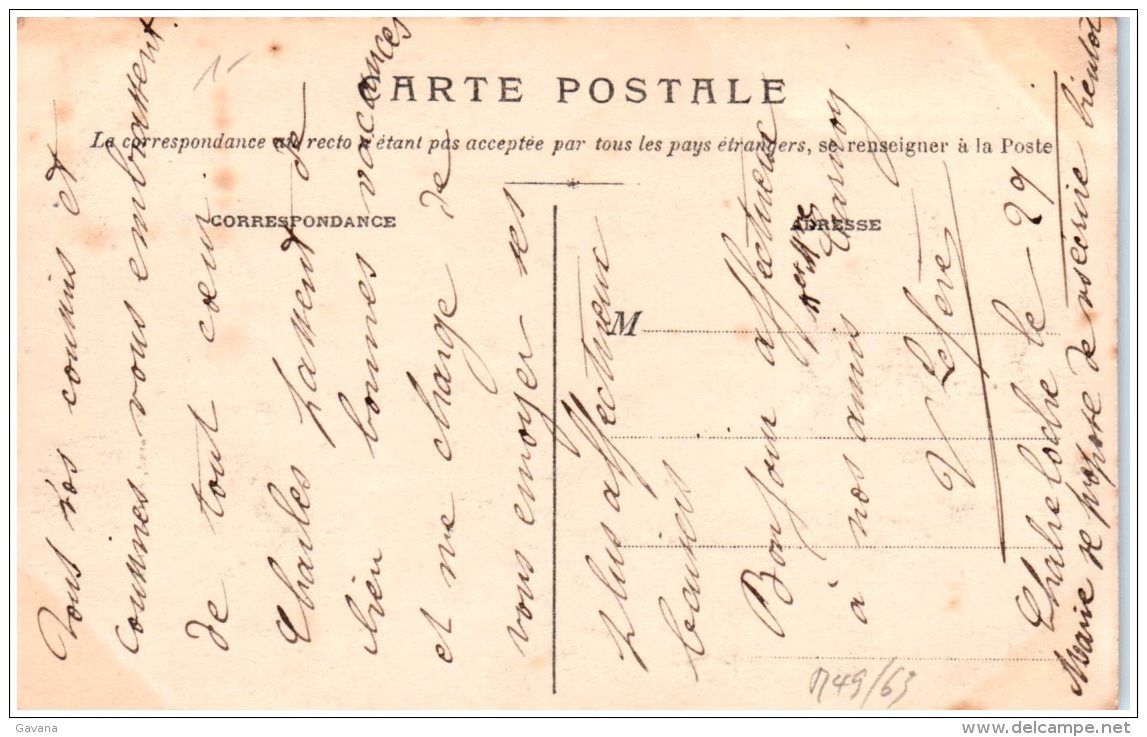 CARTE POSTALE
La correspondance au recto n'étant pas acceptée par tous les pays étrangers, se renseigner à la Poste
CORRESPONDANCE
ADRESSE
M
Tous vos cousins et
cousines vous embrassent
de tout cœur
Charles passent de
bien bonnes vacances
et me charge de
vous envoyer ses
plus affectueux
baisers
Bonjour affectueux
à nos amis
V Lefère
le 29
Marie se propose de récrire bientôt
1-
M49/63
Gavana
www.delcampe.net